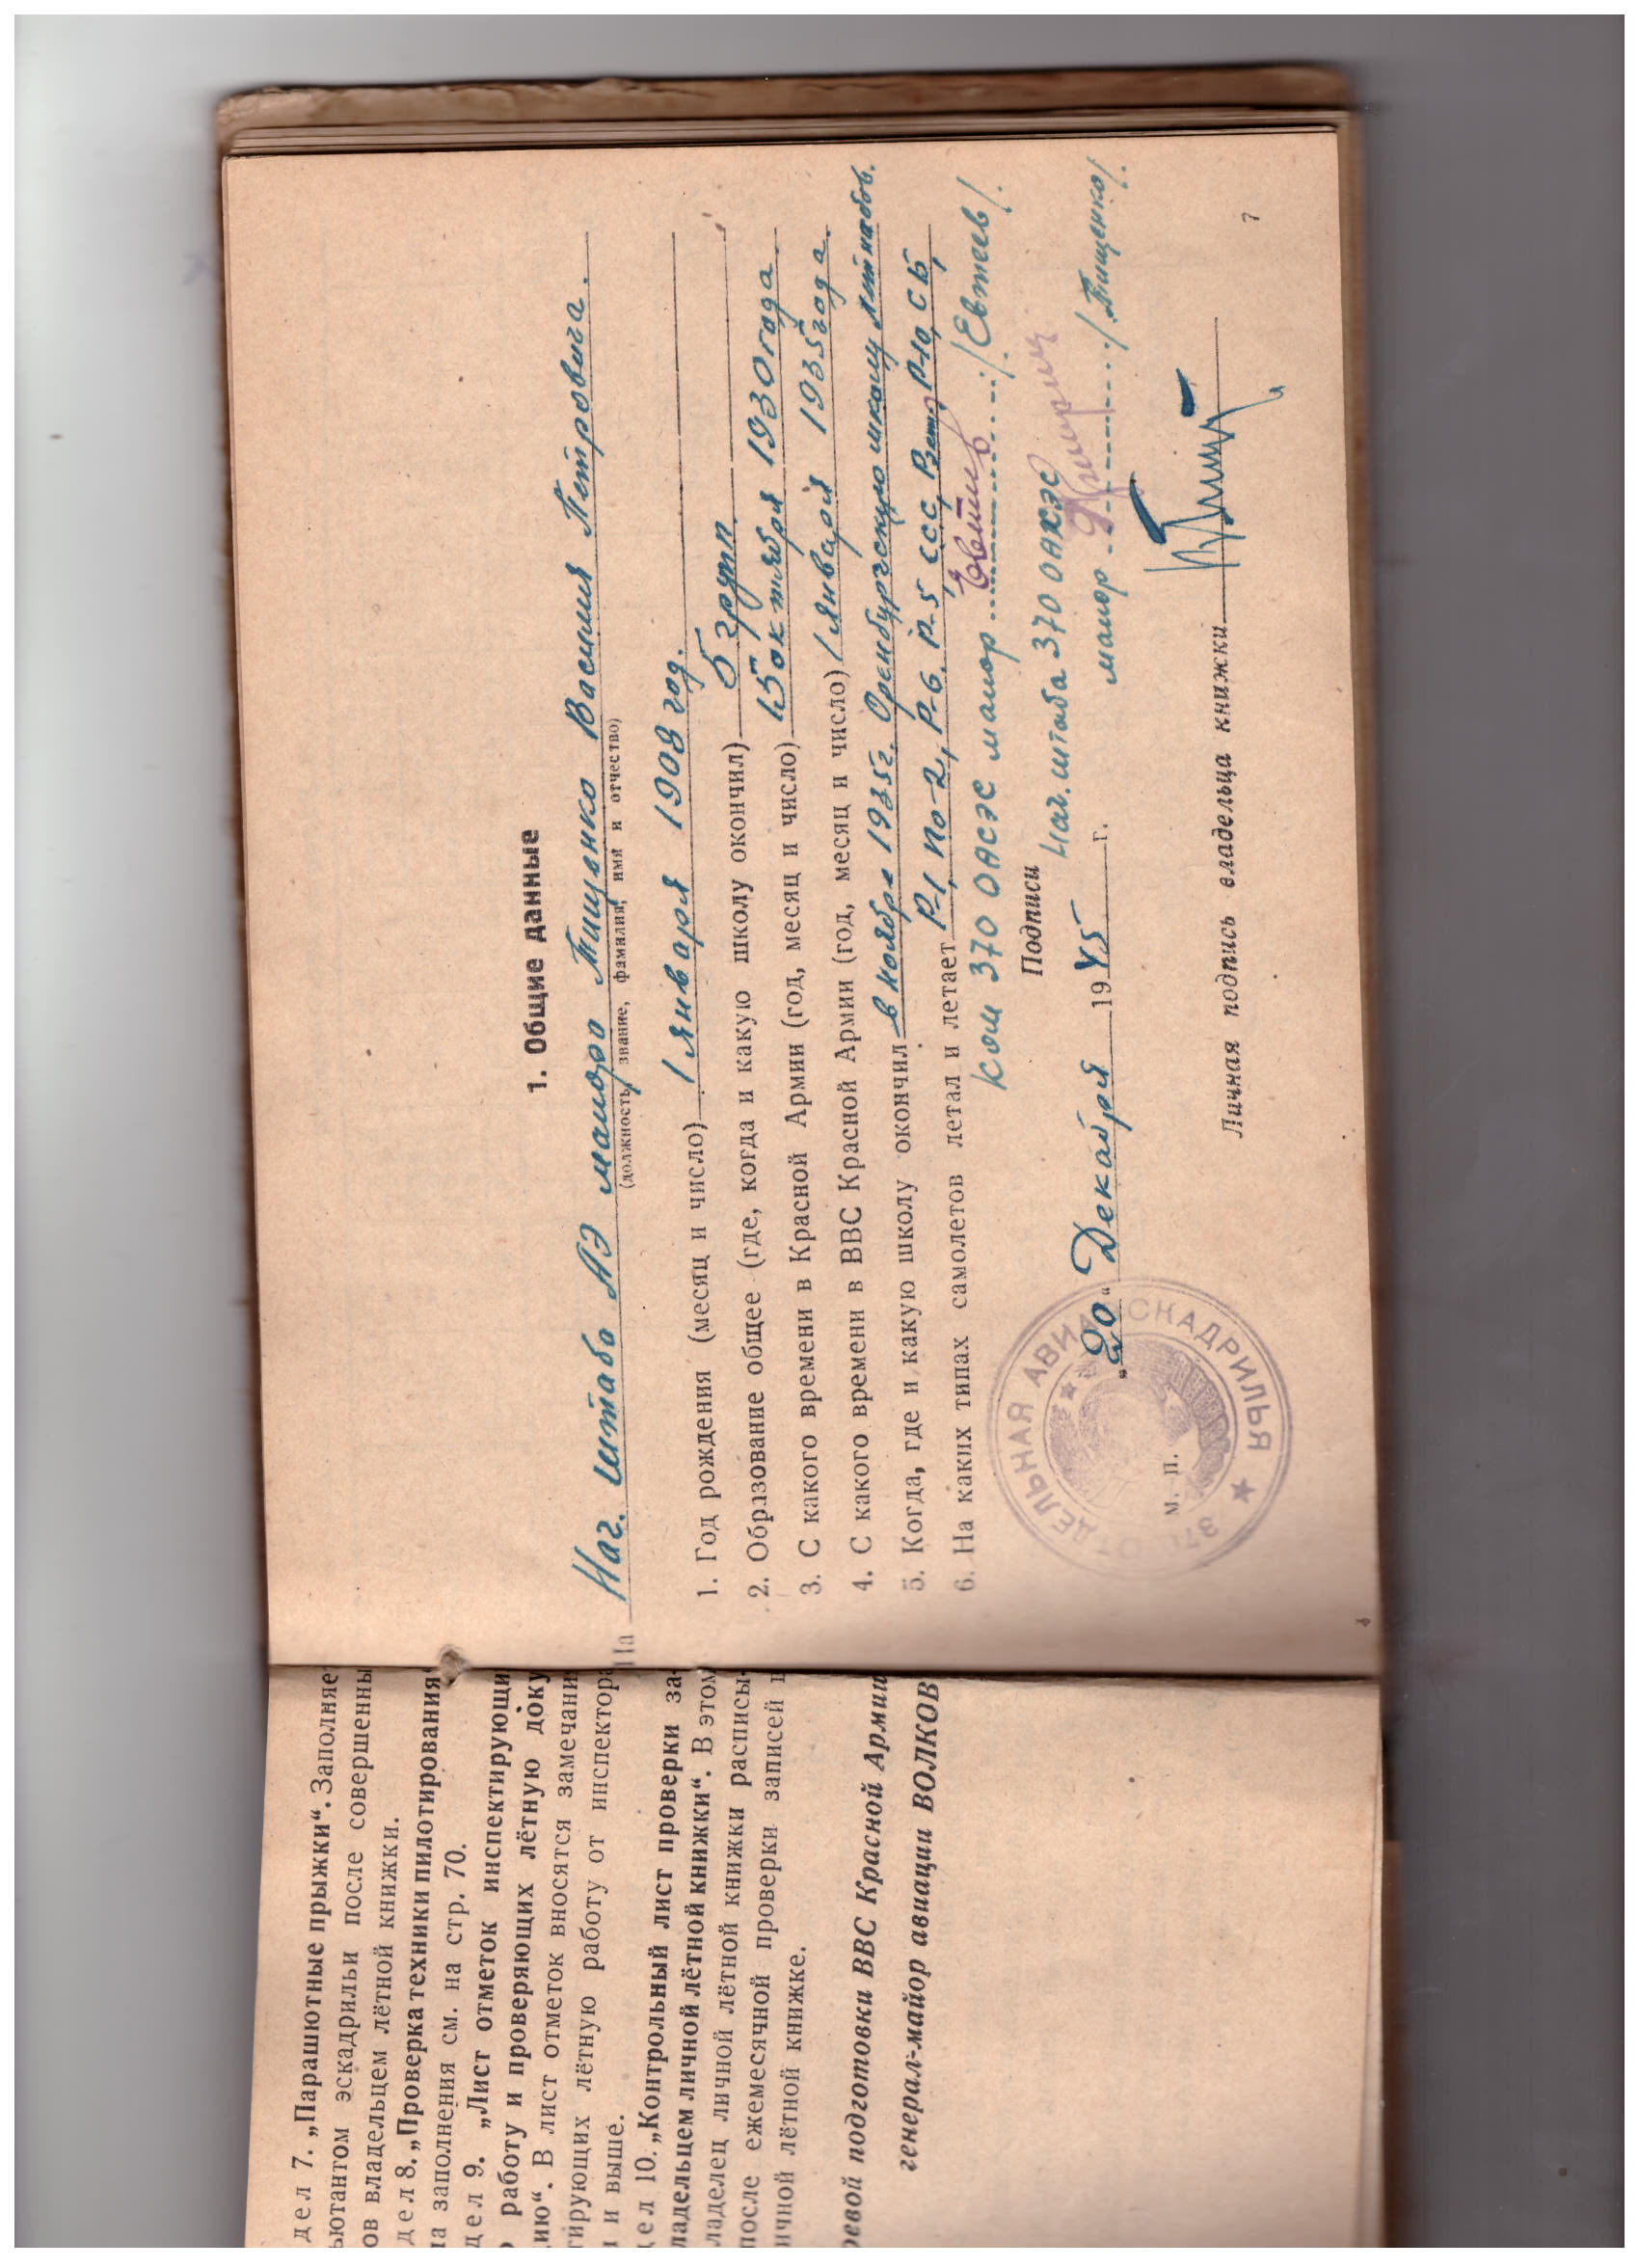 дел 7. „Парашютные прыжки“. Заполняе
ьютантом эскадрильи после совершенны
ов владельцем лётной книжки.
дел 8. „Проверка техники пилотирования
а заполнения см. на стр. 70.
дел 9. „Лист отметок инспектирующи
работу и проверяющих лётную доку
ию“. В лист отметок вносятся замечани
тирующих лётную работу от инспектора
и выше.
дел 10. „Контрольный лист проверки за-
ладельцем личной лётной книжки“. В этом
ладелец личной лётной книжки расписы-
после ежемесячной проверки записей в
ичной лётной книжке.
оевой подготовки ВВС Красной Армии
генерал-майор авиации ВОЛКОВ
1. Общие данные
На Нач. штаба АЭ майора Тищенко Василия Петровича.
(должность, звание, фамилия, имя и отчество)
1. Год рождения (месяц и число) 1 января 1908 год.
2. Образование общее (где, когда и какую школу окончил) 5 групп
3. С какого времени в Красной Армии (год, месяц и число) 15 октября 1930 года
4. С какого времени в ВВС Красной Армии (год, месяц и число) 1 января 1935 года.
5. Когда, где и какую школу окончил в ноябре 1935г. Оренбургскую школу летнабов.
6. На каких типах самолетов летал и летает Р-1, По-2, Р-6. Р-5, ССС, Р-10, СБ,
Ком 370 ОАСЭС майор Евтеев /Евтеев/.
Подписи
Нач. штаба 370 ОАКЭС
майор /Тищенко/.
„20“ Декабря 1945 г.
М. П.
370 ОТДЕЛЬНАЯ АВИАЭСКАДРИЛЬЯ
Личная подпись владельца книжки
7